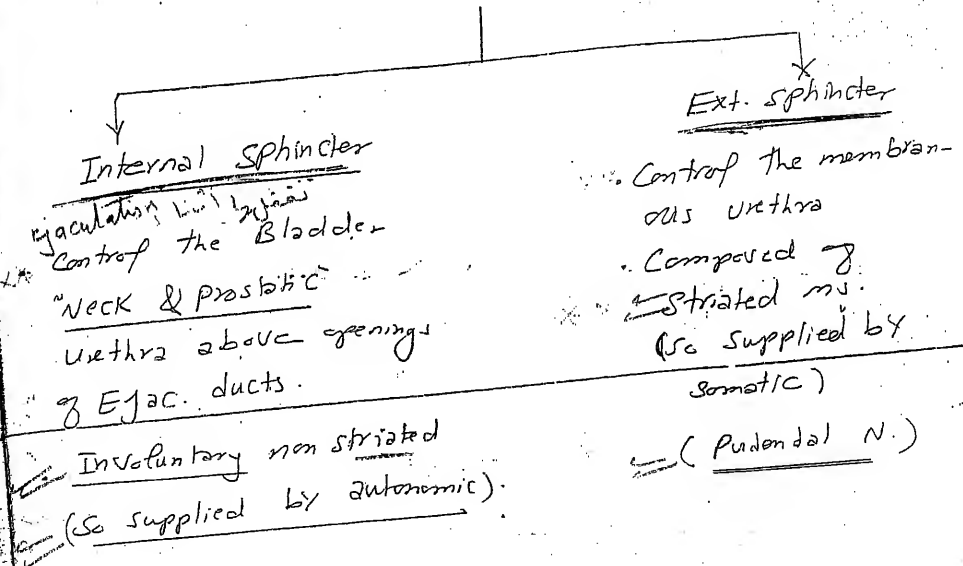 Internal Sphincter
ejaculation تقفل اثناء
Control the Bladder
"Neck & Prostatic"
Urethra above openings
of Ejac. ducts.
Involuntary non striated
(So supplied by autonomic).
Ext. Sphincter
. Control the membran-
ous Urethra
. Composed of
striated ms.
(so supplied by
somatic)
(Pudendal N.)